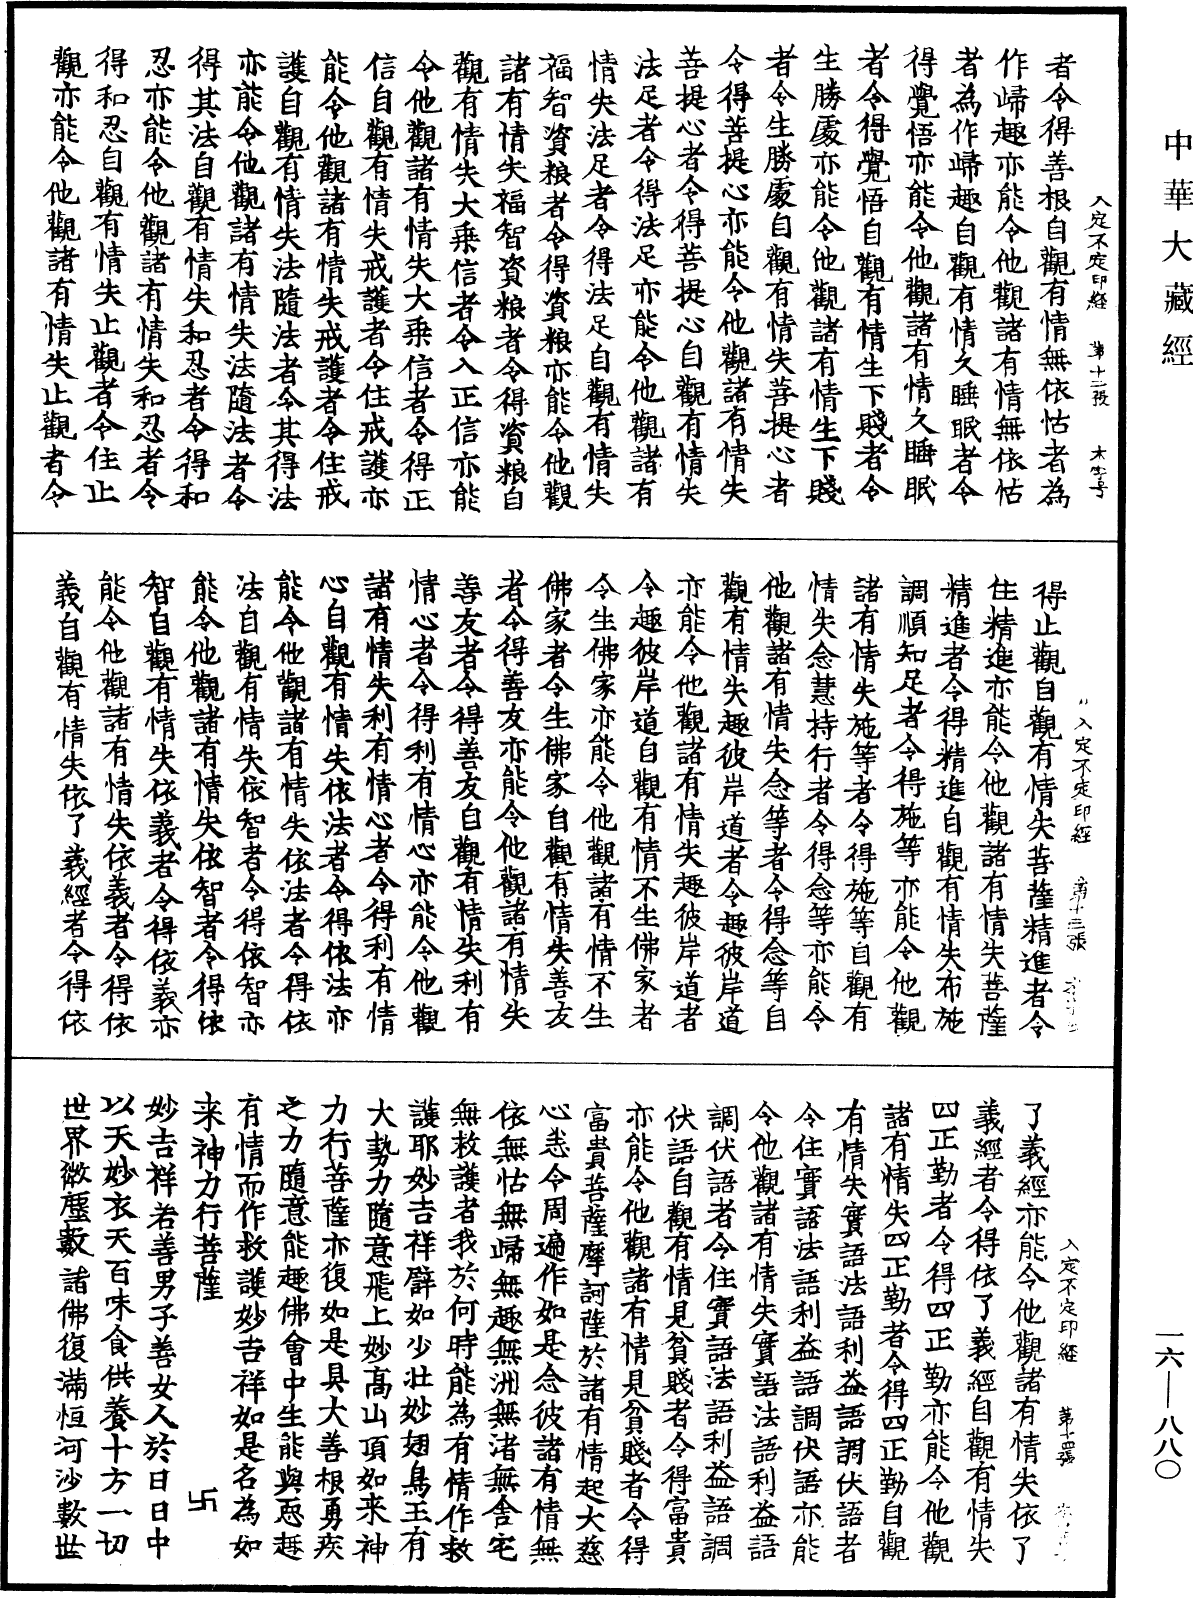 中華大藏經
者令得善根自觀有情無依怙者為
作歸趣亦能令他觀諸有情無依怙
者為作歸趣自觀有情久睡眠者令
得覺悟亦能令他觀諸有情久睡眠
者令得覺悟自觀有情生下賤者令
生勝處亦能令他觀諸有情生下賤
者令生勝處自觀有情失菩提心者
令得菩提心亦能令他觀諸有情失
菩提心者令得菩提心自觀有情失
法足者令得法足亦能令他觀諸有
情失法足者令得法足自觀有情失
福智資粮者令得資粮亦能令他觀
諸有情失福智資粮者令得資粮自
觀有情失大乘信者令入正信亦能
令他觀諸有情失大乘信者令得正
信自觀有情失戒護者令住戒護亦
能令他觀諸有情失戒護者令住戒
護自觀有情失法隨法者令其得法
亦能令他觀諸有情失法隨法者令
得其法自觀有情失和忍者令得和
忍亦能令他觀諸有情失和忍者令
得和忍自觀有情失止觀者令住止
觀亦能令他觀諸有情失止觀者令
入定不定印經 第十二張 木字号
得止觀自觀有情失菩薩精進者令
住精進亦能令他觀諸有情失菩薩
精進者令得精進自觀有情失布施
調順知足者令得施等亦能令他觀
諸有情失施等者令得施等自觀有
情失念慧持行者令得念等亦能令
他觀諸有情失念等者令得念等自
觀有情失趣彼岸道者令趣彼岸道
亦能令他觀諸有情失趣彼岸道者
令趣彼岸道自觀有情不生佛家者
令生佛家亦能令他觀諸有情不生
佛家者令生佛家自觀有情失善友
者令得善友亦能令他觀諸有情失
善友者令得善友自觀有情失利有
情心者令得利有情心亦能令他觀
諸有情失利有情心者令得利有情
心自觀有情失依法者令得依法亦
能令他觀諸有情失依法者令得依
法自觀有情失依智者令得依智亦
能令他觀諸有情失依智者令得依
智自觀有情失依義者令得依義亦
能令他觀諸有情失依義者令得依
義自觀有情失依了義經者令得依
入定不定印經 第十三張
了義經亦能令他觀諸有情失依了
義經者令得依了義經自觀有情失
四正勤者令得四正勤亦能令他觀
諸有情失四正勤者令得四正勤自觀
有情失實語法語利益語調伏語者
令住實語法語利益語調伏語亦能
令他觀諸有情失實語法語利益語
調伏語者令住實語法語利益語調
伏語自觀有情見貧賤者令得富貴
亦能令他觀諸有情見貧賤者令得
富貴菩薩摩訶薩於諸有情起大慈
心悉令周遍作如是念彼諸有情無
依無怙無歸無趣無洲無渚無舍宅
無救護者我於何時能為有情作救
護耶妙吉祥譬如少壯妙翅鳥王有
大勢力隨意飛上妙高山頂如来神
力行菩薩亦復如是具大善根勇疾
之力隨意能趣佛會中生能與惡趣
有情而作救護妙吉祥如是名為如
来神力行菩薩 卐
妙吉祥若善男子善女人於日日中
以天妙衣天百味食供養十方一切
世界微塵數諸佛復滿恒河沙數世
入定不定印經 第十四張
一六—八八〇